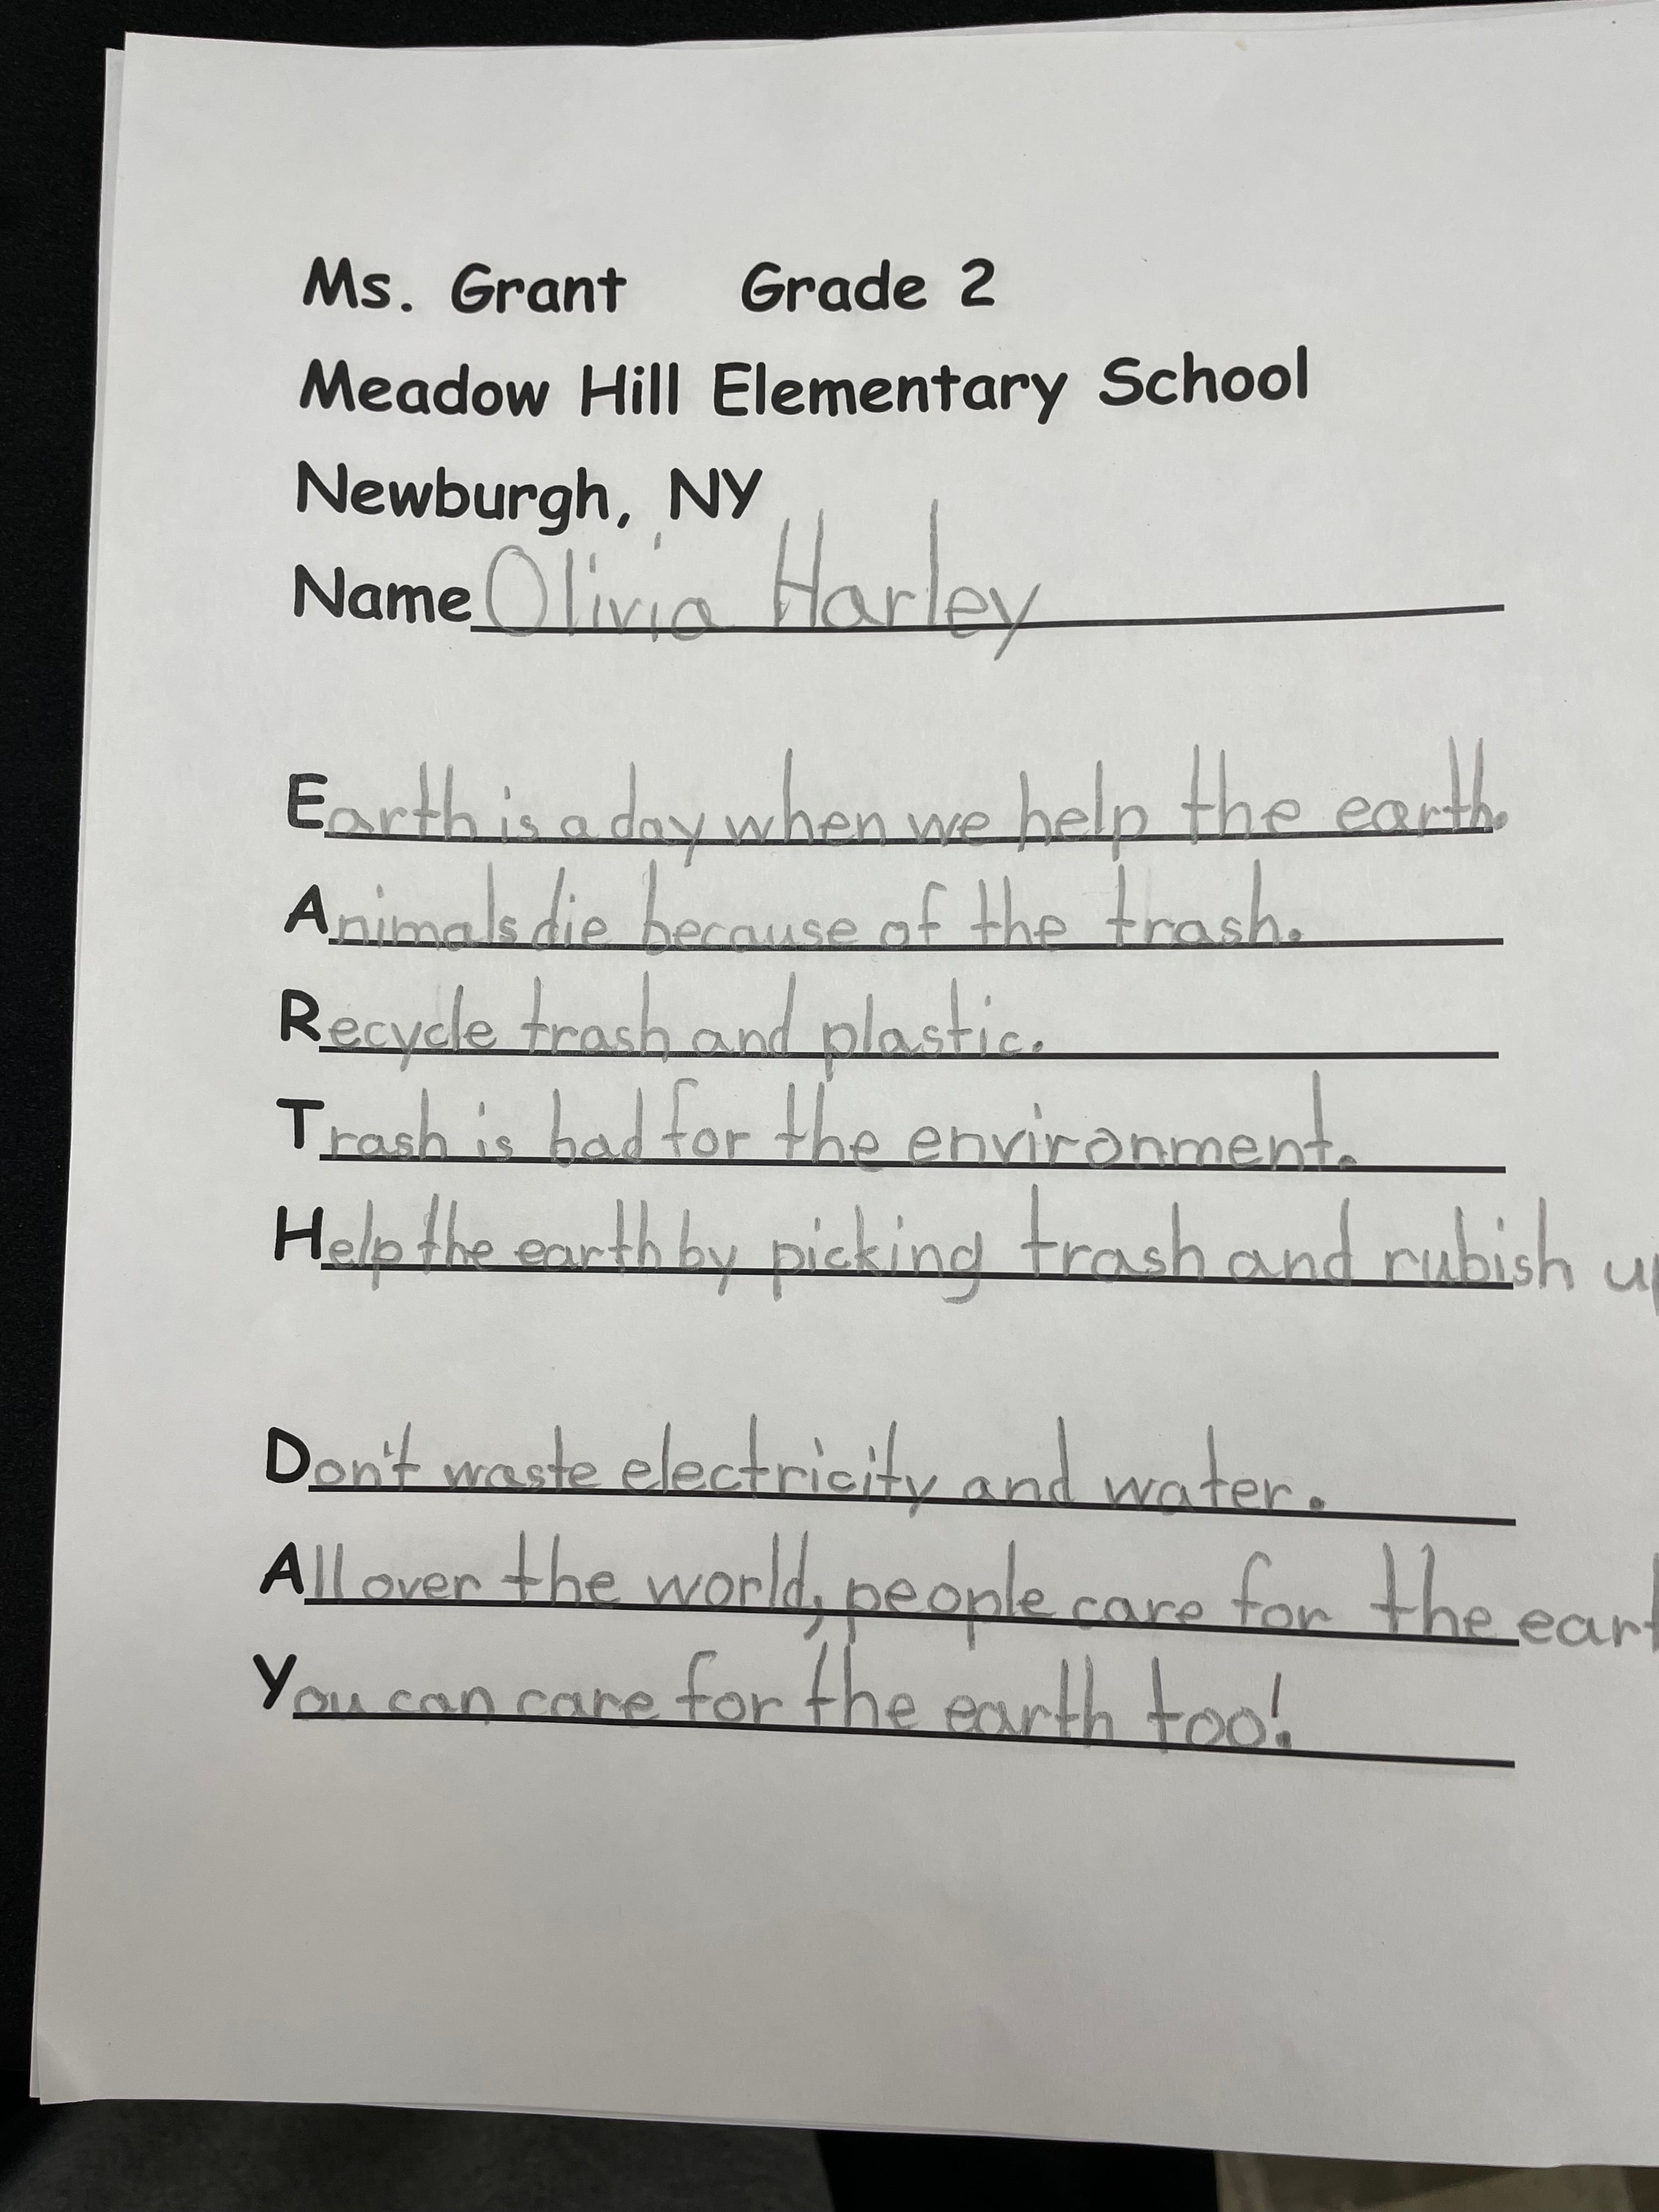 Ms. Grant Grade 2
Meadow Hill Elementary School
Newburgh, NY
Name Olivia Harley
Earth is a day when we help the earth.
Animals die because of the trash.
Recycle trash and plastic.
Trash is bad for the environment.
Help the earth by picking trash and rubish up
Don't waste electricity and water.
All over the world, people care for the eart
You can care for the earth too!